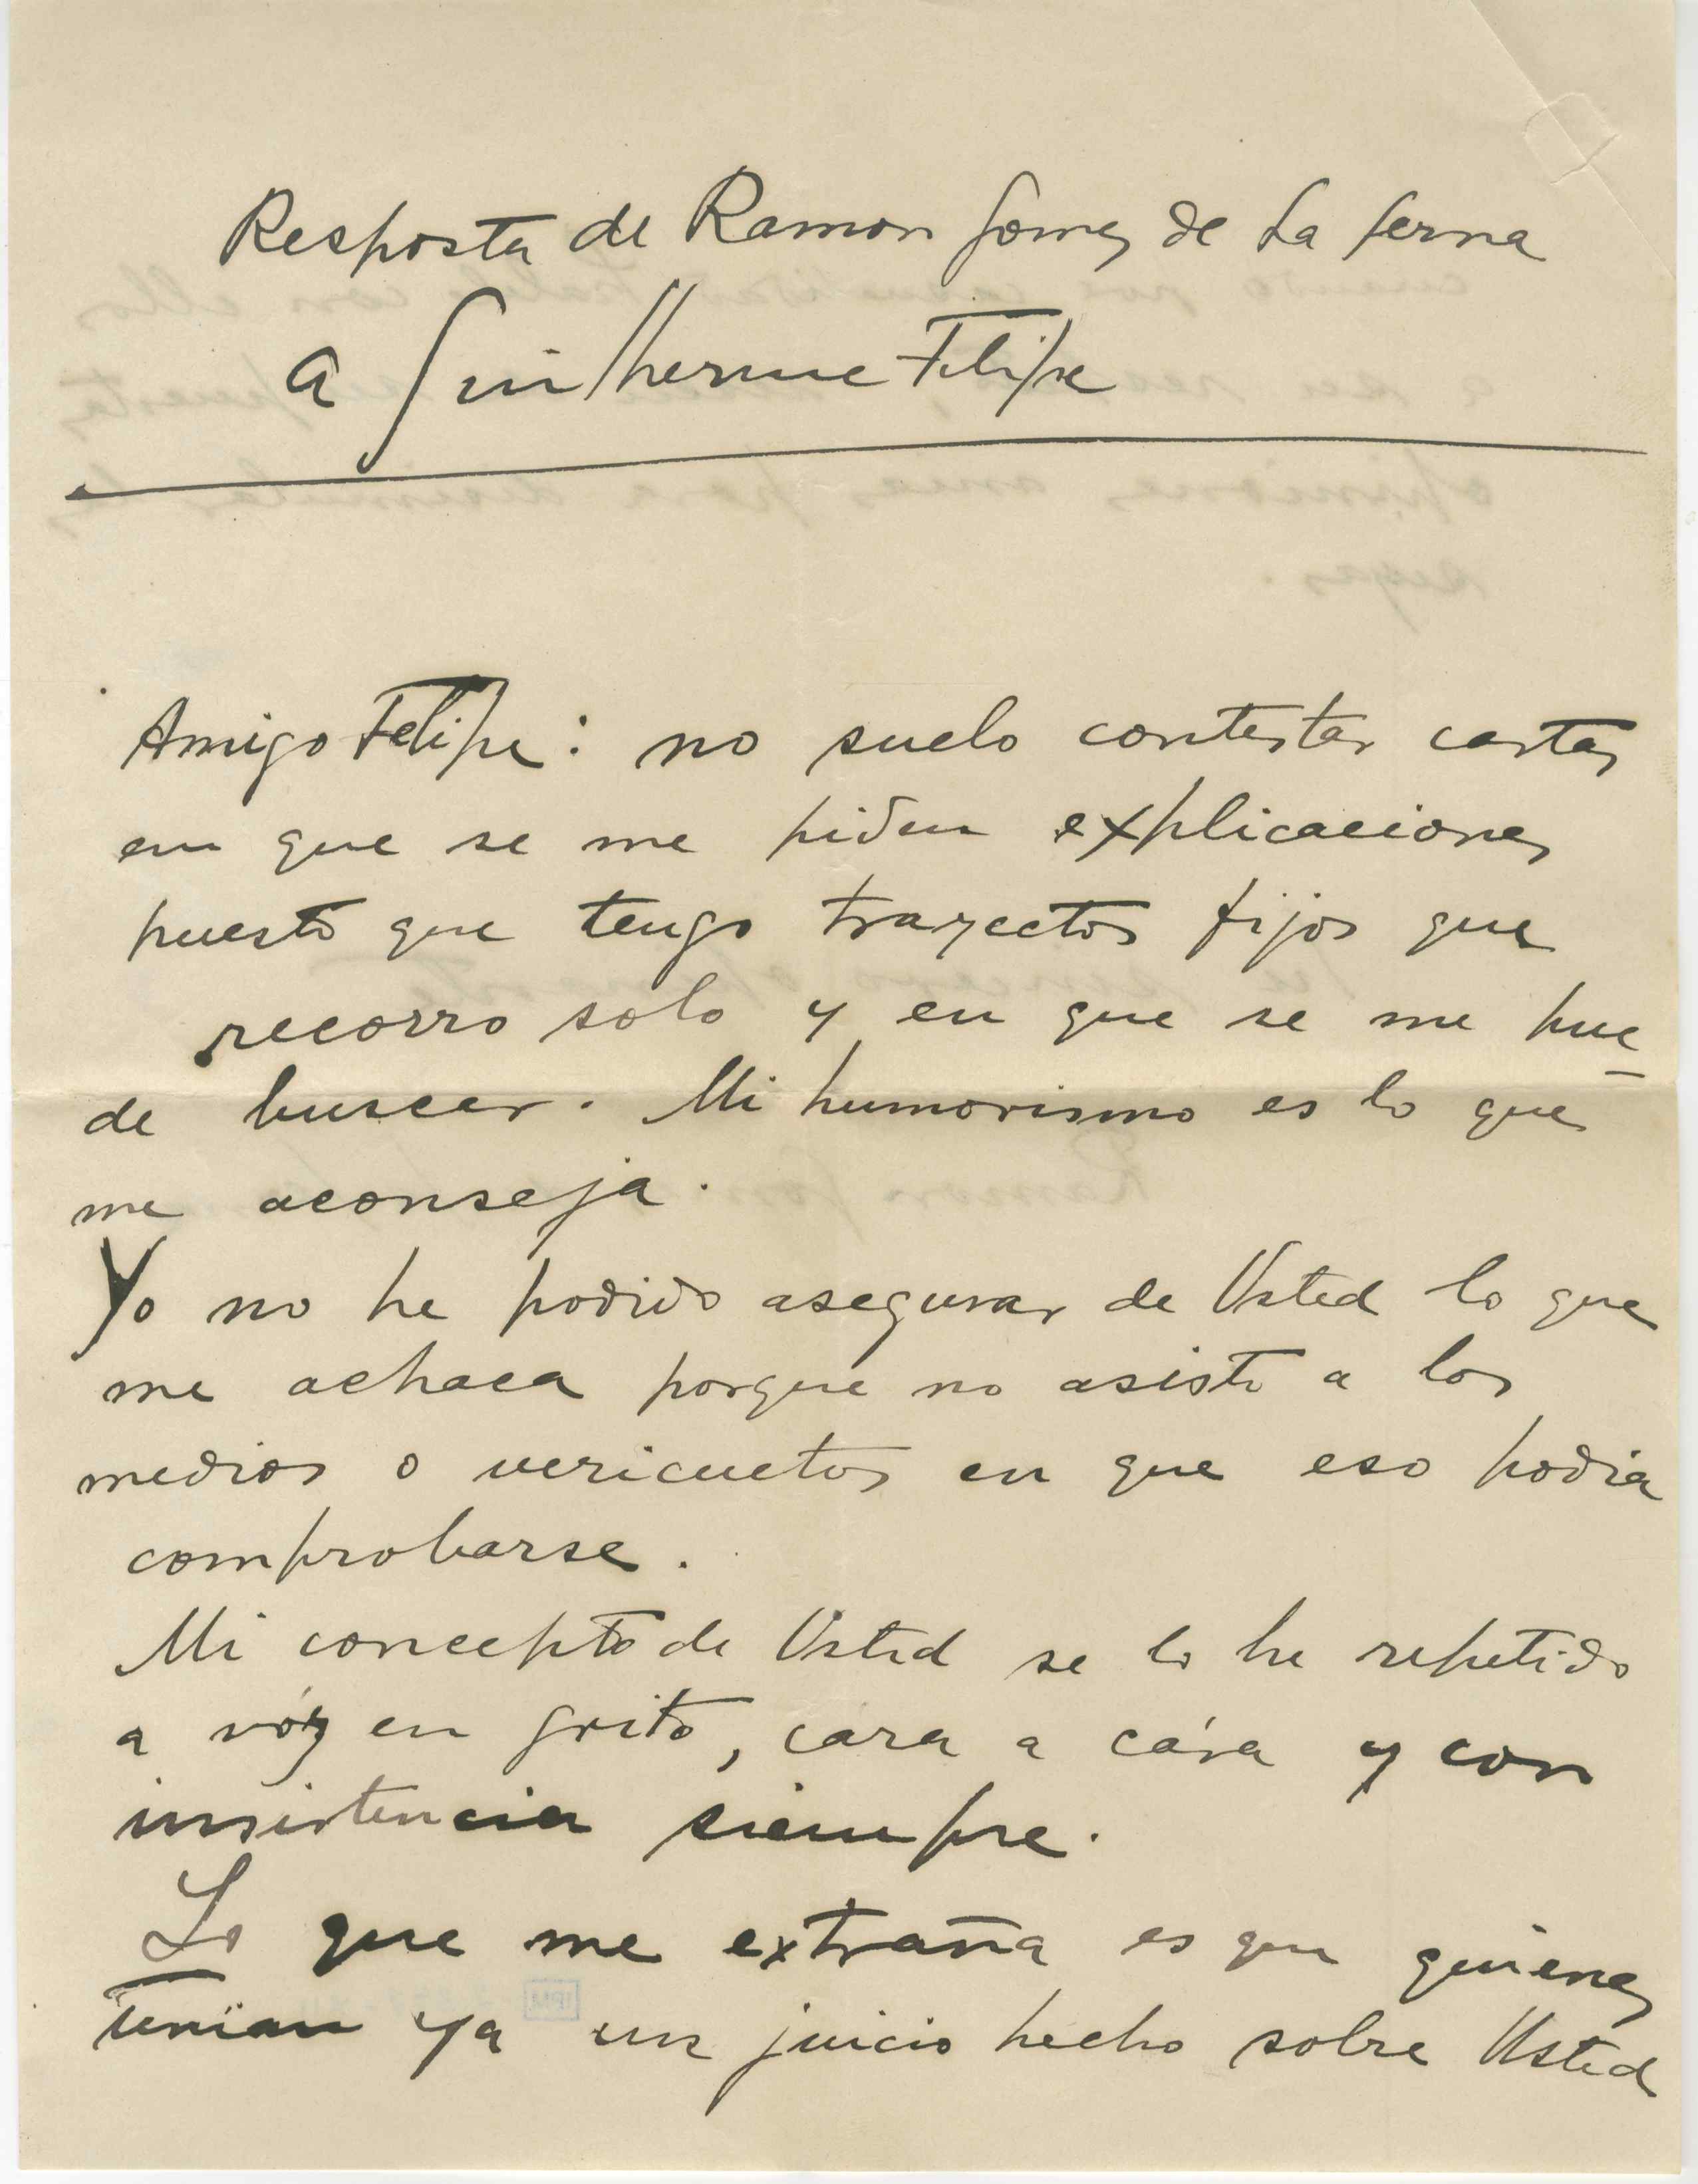 Resposta de Ramon Gomez de La Serna
a Guilherme Felipe
Amigo Felipe: no suelo contestar cartas
en que se me piden explicaciones
puesto que tengo trayectos fijos que
recorro solo y en que se me pue
de buscar. Mi humorismo es lo que
me aconseja.
Yo no he podido asegurar de Usted lo que
me achaca porque no asisto a los
medios o vericuetos en que eso podia
comprobarse.
Mi concepto de Usted se lo he repetido
a vóz en grito, cara a cára y con
insistencia siempre.
Lo que me extraña es que quienes
tenian ya un juicio hecho sobre Usted